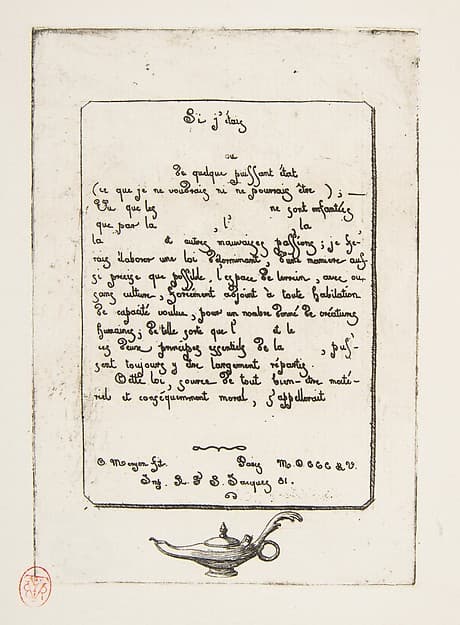 Si j'étais
ou
de quelque puissant état
(ce que je ne voudrais ni ne pourrais être) ; —
Vu que les ne sont enfantées
que par la , l' la
la et autres mauvaises passions ; je fe-
rais élaborer une loi déterminant, d'une manière aus-
si précise que possible, l'espace de terrain, avec ou
sans culture, forcément adjoint à toute habitation
de capacité voulue, pour un nombre donné de créatures
humaines ; de telle sorte que l' et le
ces deux principes essentiels de la , puis-
sent toujours y être largement répartis
Cette loi, source de tout bien-être maté-
riel et conséquemment moral, s'appellerait
C. Meryon fit. Paris
Imp. R. F S. Jacques 81.